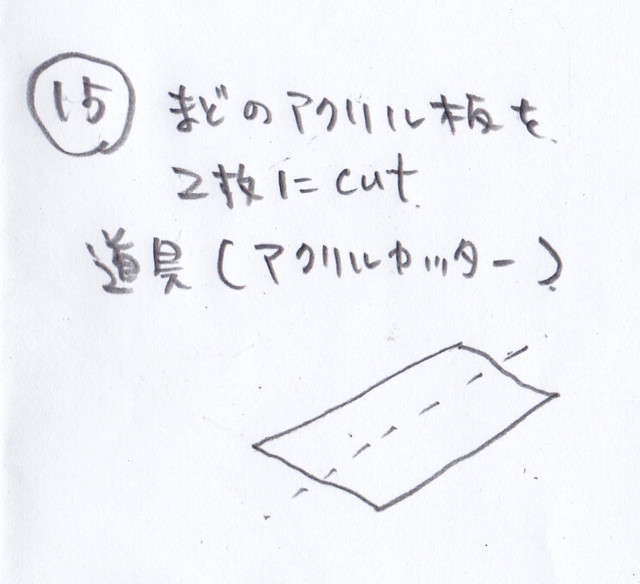 ⑮ まどのアクリル板を
2枚にcut
道具(アクリルカッター)